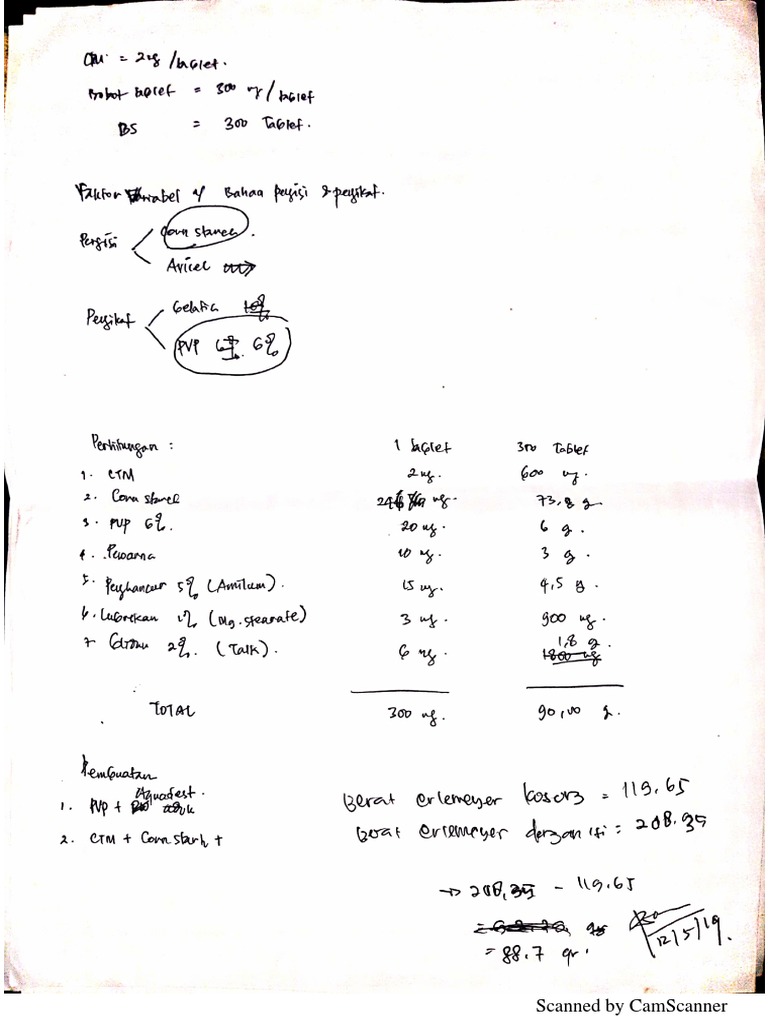 CTM = 2 mg /tablet.
Bobot tablet = 300 mg/tablet
BS = 300 Tablet.
Faktor Variabel Bahan pengisi & pengikat.
Pengisi
Corn starch.
Avicel
Pengikat
Gelatin
PVP 6%
Perhitungan : 1 tablet 300 Tablet
1. CTM 2 mg. 600 mg.
2. Corn starch 246 mg. 73,8 g.
3. PVP 6%. 20 mg. 6 g.
4. Pewarna 10 mg. 3 g.
5. Penghancur 5% (Amilum). 15 mg. 4,5 g.
6. Lubrikan 1% (Mg. stearate) 3 mg. 900 mg.
7. Glidan 2%. (Talk). 6 mg. 1,8 g.
TOTAL 300 mg. 90,00 g.
Pembuatan
1. PVP + Aquadest.
2. CTM + Corn starh +
Berat erlemeyer kosong = 119.65
Berat erlemeyer dengan isi = 208.35
→ 208,35 - 119.65
= 88.7 gr.
12/5/19.
Scanned by CamScanner